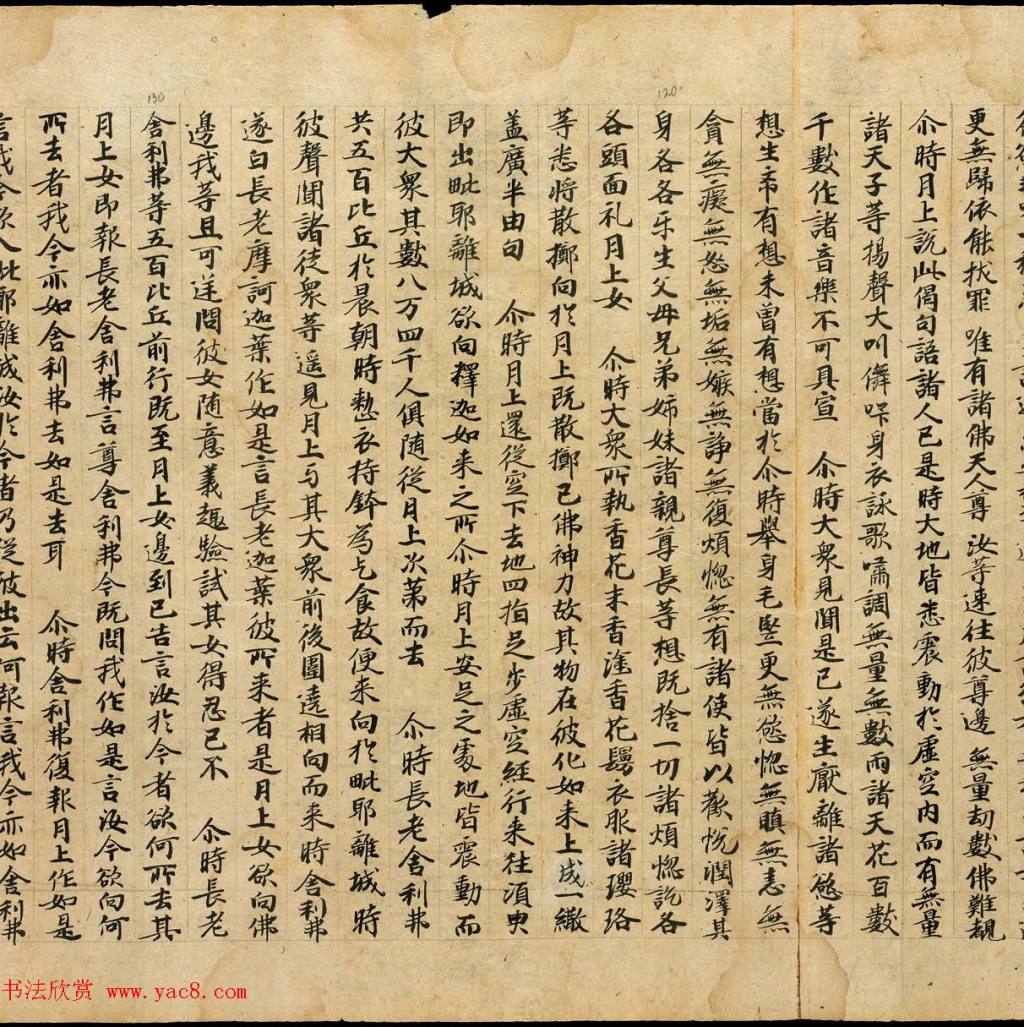 更無歸依能救罪 唯有諸佛天人尊 汝等速往彼尊邊 無量劫數佛難覩
尒時月上說此偈句語諸人已是時大地皆悉震動於虛空內而有無量
諸天子等揚聲大叫儛身衣詠歌嘯調無量無數雨諸天花百數
千數作諸音樂不可具宣 尒時大衆見聞是已遂生猒離諸慾等
想生希有想未曾有想當於尒時舉身毛竪更無慾惱無瞋無恚無
貪無癡無忿無垢無嫉無諍無復煩惱無有諸使皆以歡悅潤澤其
身各各乐生父母兄弟姉妹諸親尊長等想既捨一切諸煩惱訖各
各頭面礼月上女 尒時大衆所執香花末香塗香花鬘衣服諸瓔珞
等悉將散擲向於月上既散擲已佛神力故其物在彼化如来上成一繖
盖廣半由旬 尒時月上還從空下去地四指足步虛空經行来往須臾
即出毗耶離城欲向釋迦如来之所尒時月上安足之處地皆震動而
彼大衆其數八万四千人俱随從月上次第而去 尒時長老舍利弗
共五百比丘於晨朝時整衣持鉢為乞食故便来向於毗耶離城時
彼聲聞諸徒衆等遥見月上与其大衆前後圍遶相向而来時舍利弗
遂白長老摩訶迦葉作如是言長老迦葉彼所来者是月上女欲向佛
邊我等且可逆問彼女随意義趣驗試其女得忍已不 尒時長老
舍利弗等五百比丘前行既至月上女邊到已告言汝於今者欲何所去其
月上女即報長老舍利弗言尊舍利弗今既問我作如是言汝今欲向何
所去者我今亦如舍利弗去如是去耳 尒時舍利弗復報月上作如是
言我今欲入毗耶離城汝於今者乃從彼出云何報言我今亦如舍利弗
120
130
书法欣赏 www.yac8.com